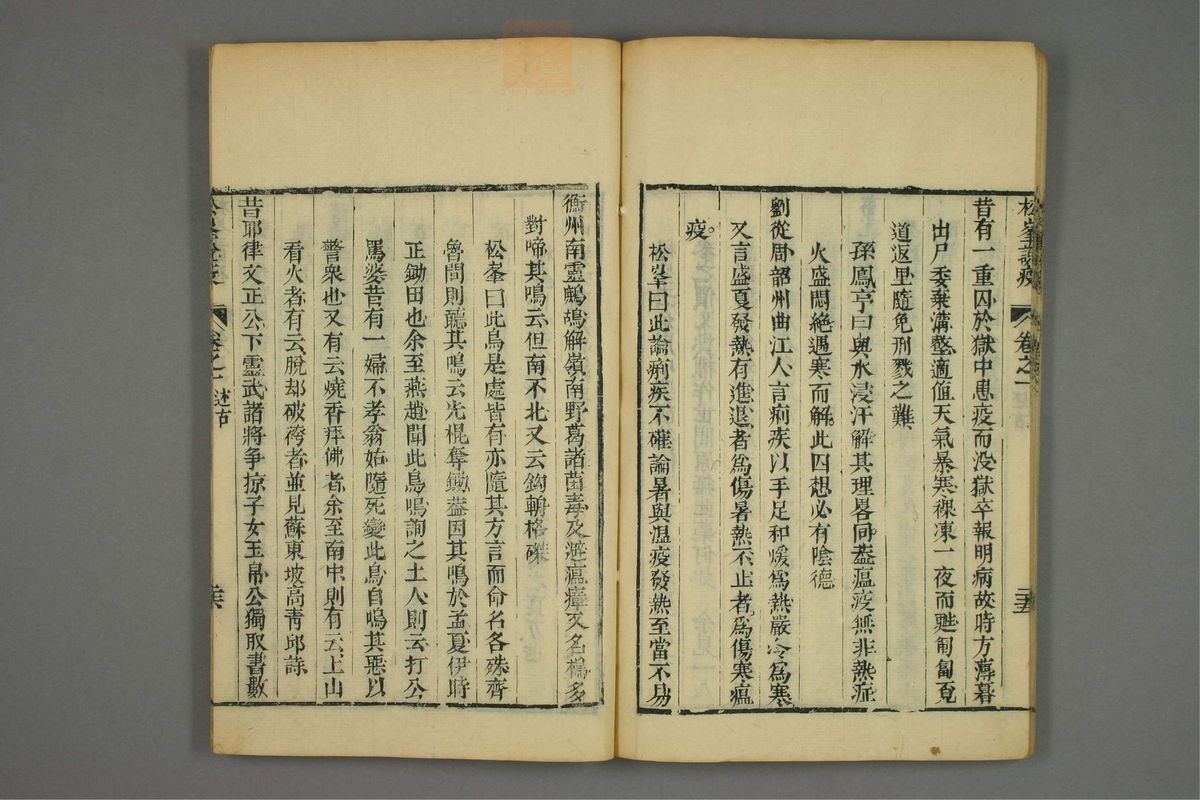 松峯說疫
卷之一
述古
三五
昔有一重囚於獄中患疫而没獄卒報明病故時方薄暮
出尸委棄溝壑適值天氣暴寒裸凍一夜而甦匍匐覓
道返里隨免刑戮之難
孫鳳亭曰與水浸汗解其理畧同蓋瘟疫無非熱症
火盛悶絶遇寒而解此囚想必有陰德
劉從周韶州曲江人言痢疾以手足和煖爲熱嚴冷爲寒
又言盛夏發熱有進退者爲傷暑熱不止者爲傷寒瘟
疫
松峯曰此論痢疾不確論暑與温疫發熱至當不易
衡州南靈鷓鴣解嶺南野葛諸菌毒及避瘟瘴又名㯽多
對啼其鳴云但南不北又云鈎輈格磔
松峯曰此鳥是處皆有亦隨其方言而命名各殊齊
魯間則聽其鳴云光棍奪鋤蓋因其鳴於孟夏伊時
正鋤田也余至燕趙聞此鳥鳴詢之土人則云打公
罵婆昔有一婦不孝翁姑隨死變此鳥自鳴其惡以
警衆也又有云燒香拜佛者余至南中則有云上山
看火者有云脫却破袴者並見蘇東坡高靑邱詩
昔耶律文正公下靈武諸將争掠子女玉帛公獨取書數
松峯說疫
卷之一
述古
三六